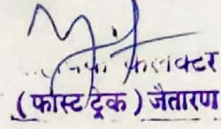 कलक्टर
(फास्ट ट्रेक) जैतारण